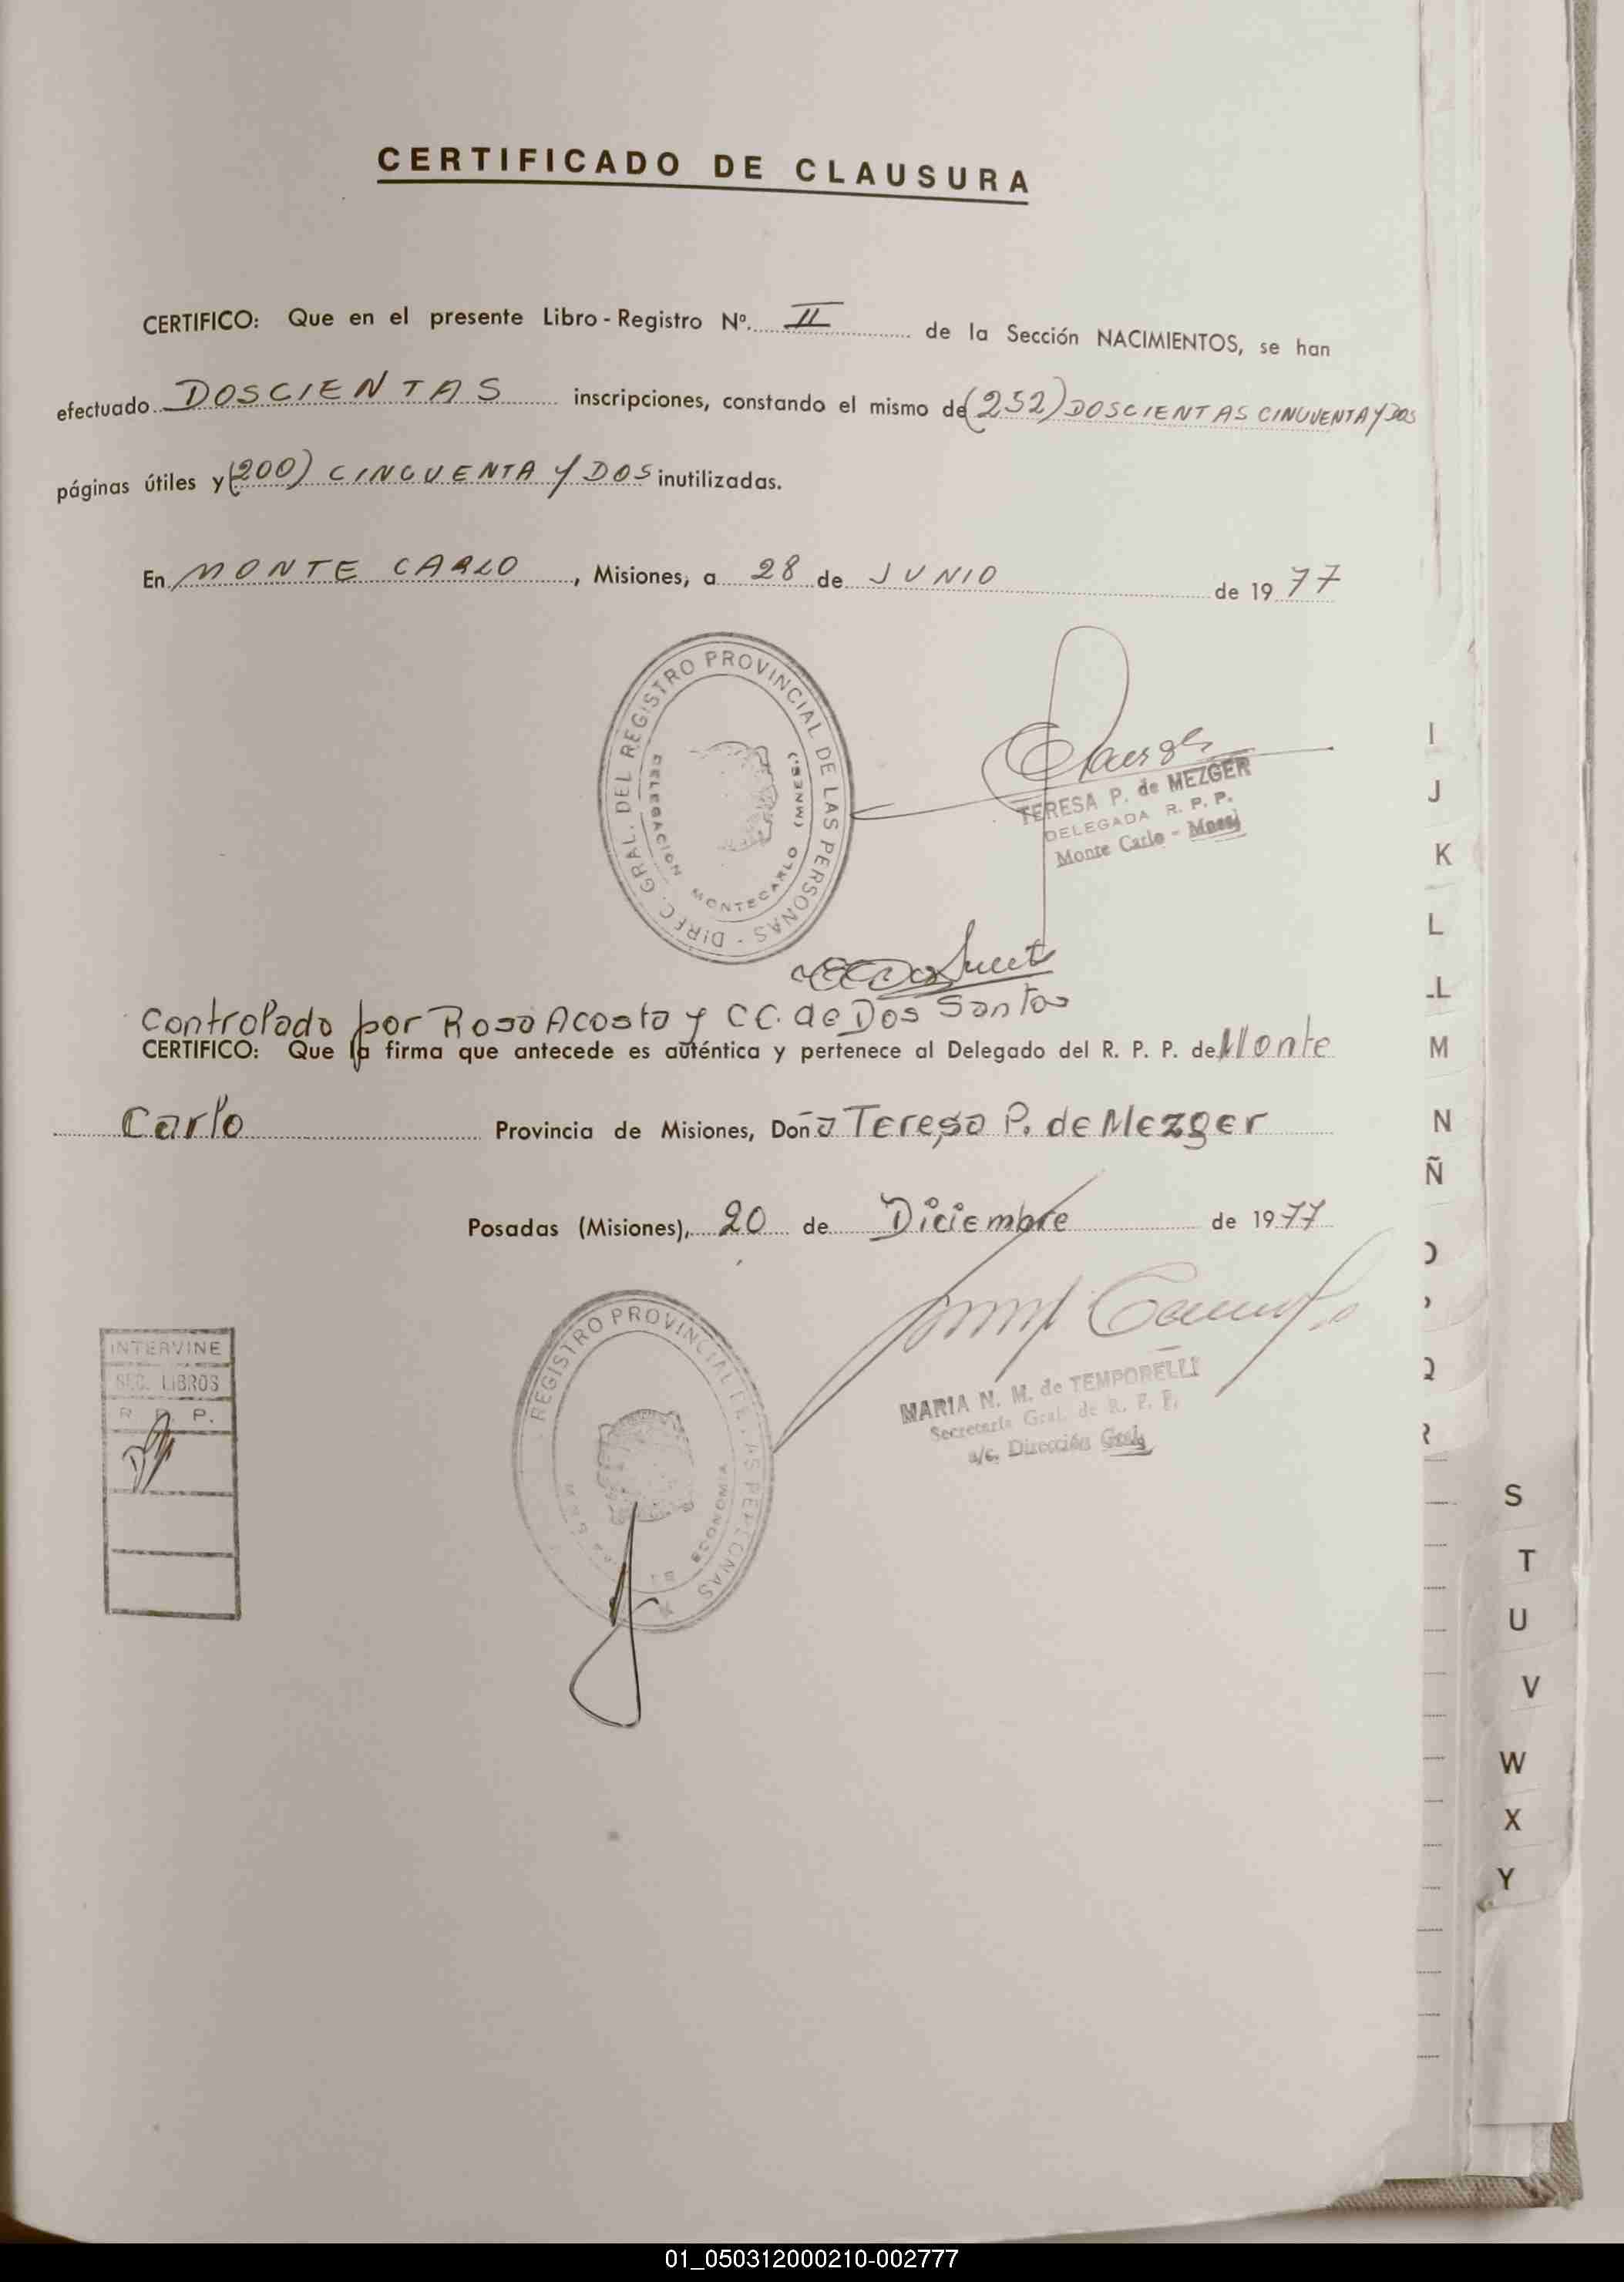 CERTIFICADO DE CLAUSURA
CERTIFICO: Que en el presente Libro-Registro Nº. II de la Sección NACIMIENTOS, se han
efectuado DOSCIENTAS inscripciones, constando el mismo de (252) DOSCIENTAS CINCUENTA Y DOS
páginas útiles y (200) CINCUENTA Y DOS inutilizadas.
En MONTE CARLO, Misiones, a 28 de JUNIO de 1977
DIREC. GRAL. DEL REGISTRO PROVINCIAL DE LAS PERSONAS -
DELEGACION MONTECARLO (MNES.)
TERESA P. de MEZGER
DELEGADA R. P. P.
Monte Carlo -
Controlado por Rosa Acosta y CC. de Dos Santos
CERTIFICO: Que la firma que antecede es auténtica y pertenece al Delegado del R. P. P. de Monte
Carlo Provincia de Misiones, Doña Teresa P. de Mezger
Posadas (Misiones), 20 de Diciembre de 1977
INTERVINE
SEC. LIBROS
R. P. P.
REGISTRO PROVINCIAL DE LAS PERSONAS
ECONOMIA
MARIA N. M. de TEMPORELLI
Secretaria Gral. de R. P. P.
a/c. Dirección Gral.
I
J
K
L
LL
M
N
Ñ
O
P
Q
R
S
T
U
V
W
X
Y
01_050312000210-002777